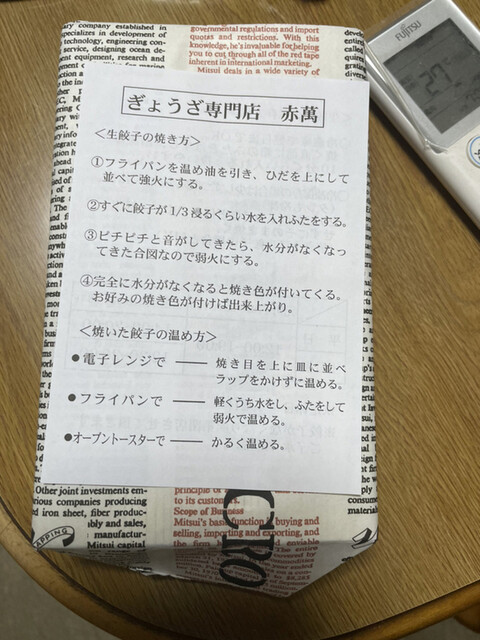 ぎょうざ専門店 赤萬
<生餃子の焼き方>
①フライパンを温め油を引き、ひだを上にして
並べて強火にする。
②すぐに餃子が1/3浸るくらい水を入れふたをする。
③ピチピチと音がしてきたら、水分がなくなっ
てきた合図なので弱火にする。
④完全に水分がなくなると焼き色が付いてくる。
お好みの焼き色が付けば出来上がり。
<焼いた餃子の温め方>
●電子レンジで ── 焼き目を上に皿に並べ
ラップをかけずに温める。
●フライパンで ── 軽くうち水をし、ふたをして
弱火で温める。
●オーブントースターで ── かるく温める。
FUJITSU
ary company established in
specializes in development of
technology, engineering con-
service, designing ocean de-
ent equipment, research and
governmental regulations and import
quotas and restrictions. With this
knowledge, he's invaluable for helping
you to cut through all of the red tape
inherent in international marketing.
Mitsui deals in a wide variety of
Other joint investments em-
various companies producing
iron sheet, fiber produc-
bly and sales,
manufactur-
Mitsui capital
principle of
to its customers.
Scope of Business
Mitsui's basic function is buying and
selling, importing and exporting, and
CRO